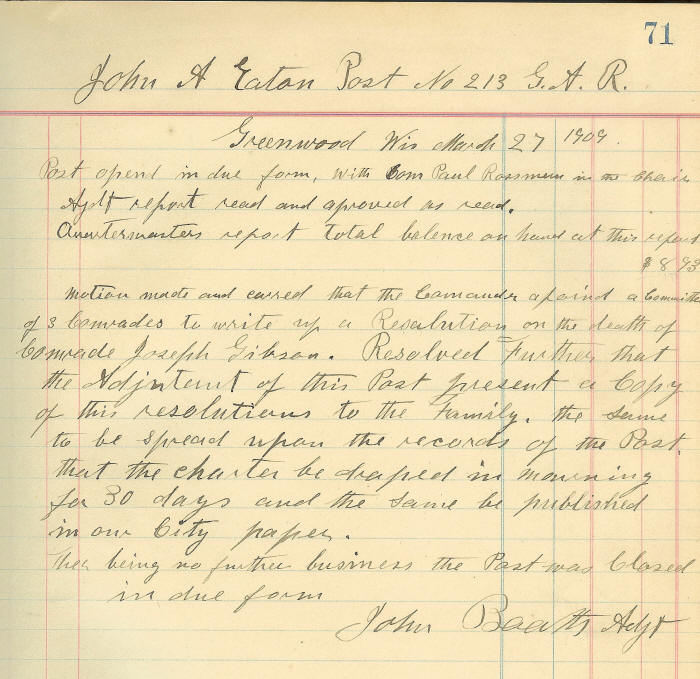 71
John A Eaton Post No 213 G. A. R.
Greenwood Wis March 27 1909.
Post opend in due form, with Com Paul Rossman in the Chair
Ajdt report read and aproved as read.
Quartermasters report total balence on hand at this report
$ 8,93
Motion made and carred that the Comander apoind a Committe
of 3 Comrades to write up a Resalution on the death of
Comrade Joseph Gibson. Resolved Further that
the Adjntant of this Post present a Copy
of this resolutions to the Family. the same
to be spread upon the records of the Post.
that the charter be draped in mourning
for 30 days and the same be published
in our City paper.
Ther being no further business the Post was Closed
in due form
John Adjt